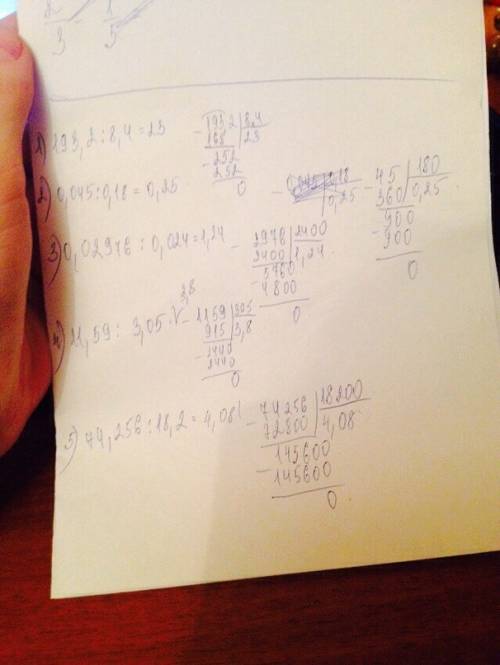 3 5
1) 193,2 : 8,4 = 23
- 1932 | 8,4
168 | 23
- 252
252
0
2) 0,045 : 0,18 = 0,25
0,25
- 45 | 180
360 | 0,25
- 900
900
0
3) 0,02976 : 0,024 = 1,24
- 2976 | 2400
2400 | 1,24
- 5760
4800
0
4) 11,59 : 3,05 = 3,8
- 1159 | 305
915 | 3,8
- 2440
2440
0
5) 74,256 : 18,2 = 4,08
- 74256 | 18200
72800 | 4,08
- 145600
145600
0